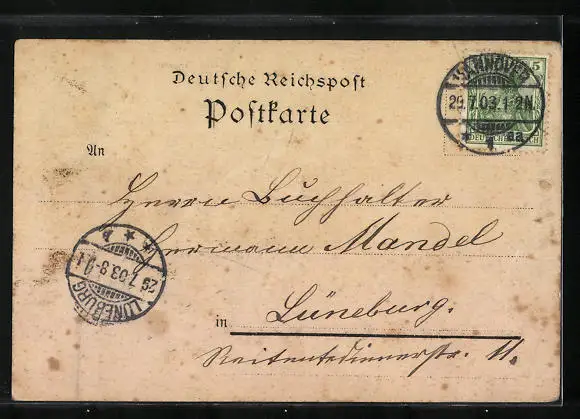 Deutsche Reichspost
Postkarte
HANNOVER
29.7.03.1-2N
* 1 aa
5
An
Herrn Buchhalter
Hermann Mandel
in Lüneburg.
11.
LÜNEBURG
29.7.03.8-9
* b *